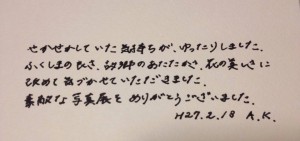 せかせかしていた気持ちが、ゆったりしました。
ふくしまの良さ、故郷のあたたかさ、花の美しさに
改めて気づかせていただきました。
素敵な写真展をありがとうございました。
H27.2.18 A.K.